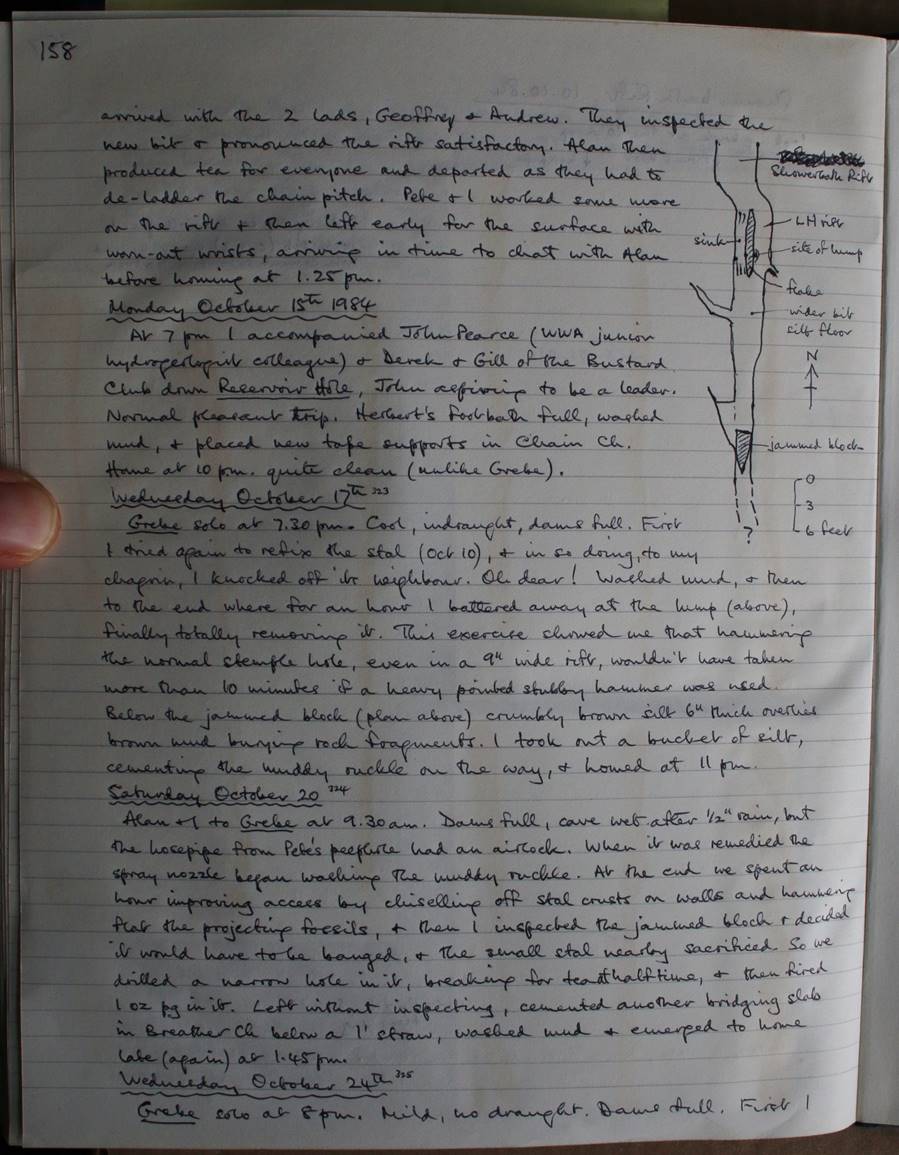 158
arrived with the 2 lads, Geoffrey & Andrew. They inspected the
new bit & pronounced the rift satisfactory. Alan then
produced tea for everyone and departed as they had to
de-ladder the chain pitch. Pete & I worked some more
on the rift & then left early for the surface with
worn-out wrists, arriving in time to chat with Alan
before homing at 1.25 pm.
Showerbath Rift
LH rift
sink
site of lump
flake
wider bit
silt floor
N
jammed block
0
3
6 feet
?
Monday October 15th 1984
At 7 pm I accompanied John Pearce (WWA junior
hydrogeologist colleague) & Derek & Gill of the Bustard
Club down Reservoir Hole, John aspiring to be a leader.
Normal pleasant trip. Herbert's footbath full, washed
mud, & placed new tape supports in Chain Ch.
Home at 10 pm. quite clean (unlike Grebe).
Wednesday October 17th 323
Grebe solo at 7.30 pm. Cool, indraught, dams full. First
I tried again to refix the stal (Oct 10), & in so doing, to my
chagrin, I knocked off its neighbour. Oh dear! Washed mud, & then
to the end where for an hour I battered away at the lump (above),
finally totally removing it. This exercise showed me that hammering
the normal stemple hole, even in a 9" wide rift, wouldn't have taken
more than 10 minutes if a heavy pointed stubby hammer was used.
Below the jammed block (plan above) crumbly brown silt 6" thick overlies
brown mud burying rock fragments. I took out a bucket of silt,
cementing the muddy ruckle on the way, & homed at 11 pm.
Saturday October 20 324
Alan & I to Grebe at 9.30 am. Dams full, cave wet after 1/2" rain, but
the hosepipe from Pete's peephole had an airlock. When it was remedied the
spray nozzle began washing the muddy ruckle. At the end we spent an
hour improving access by chiselling off stal crusts on walls and hammering
flat the projecting fossils, & then I inspected the jammed block & decided
it would have to be banged, & the small stal nearby sacrificed. So we
drilled a narrow hole in it, breaking for tea at half time, & then fired
1 oz pg in it. Left without inspecting, cemented another bridging slab
in Breather Ch below a 1' straw, washed mud & emerged to home
late (again) at 1.45 pm.
Wednesday October 24th 325
Grebe solo at 8 pm. Mild, no draught. Dams full. First I